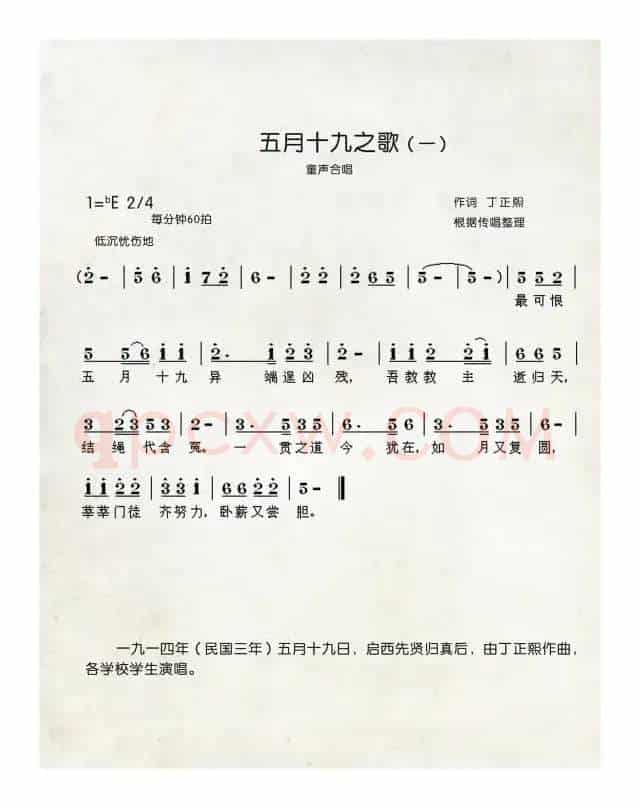 五月十九之歌(一)
童声合唱
1=ᵇE 2/4
作词 丁正熙
每分钟60拍
根据传唱整理
低沉忧伤地
(2̇ - | 5̇ 6̇ | 1̇ 7 2̇ | 6 - | 2̇ 2̇ | 2̇ 6 5 | 5 - | 5 - ) | 5 5 2 |
最可恨
5 5 6 1̇ 1̇ | 2̇ . 1̇ 2̇ 3̇ | 2̇ - | 1̇ 1̇ 2̇ 2̇ 1̇ | 5 6 5 |
五 月 十 九 异 端逞凶 残, 吾教教 主 逝归天,
3 2 3 5 5 | 2 - | 3 . 5 3 5 | 6 . 5 6 | 3 . 5 3 5 | 6 - |
结 绳 代含 冤。 一 贯之道 今 犹在, 如 月又复 圆,
1̇ 1̇ 2̇ 2̇ | 3̇ 3̇ 1̇ | 6 6 2̇ 2̇ | 5 - ‖
莘莘门徒 齐努力, 卧薪又尝 胆。
qpcxw.COM
一九一四年(民国三年)五月十九日,启西先贤归真后,由丁正熙作曲,
各学校学生演唱。